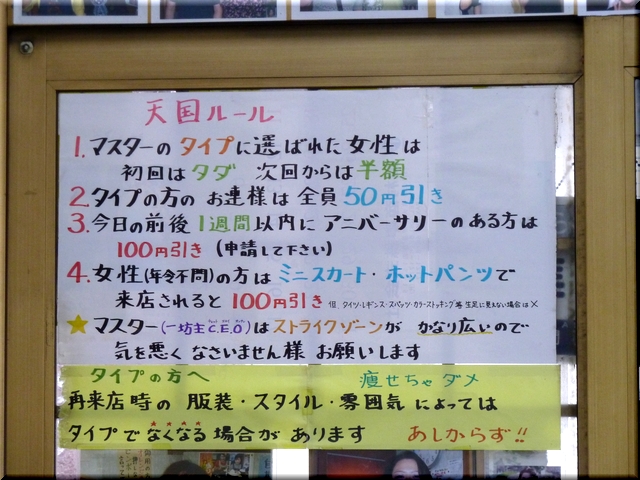 天国ルール
1.マスターのタイプに選ばれた女性は
初回はタダ 次回からは半額
2.タイプの方の お連様は 全員 50円引き
3.今日の前後 1週間以内に アニバーサリーのある方は
100円引き (申請して下さい)
4.女性(年令不問)の方は ミニスカート・ホットパンツで
来店されると 100円引き 但、タイツ・レギンス・スパッツ・カラーストッキング等 生足に見えない場合は×
★マスター(一坊主C.E.O)はストライクゾーンが かなり広いので
気を悪く なさいません様 お願いします
タイプの方へ 痩せちゃダメ
再来店時の 服装・スタイル・雰囲気 によっては
タイプでなくなる場合が あります あしからず!!